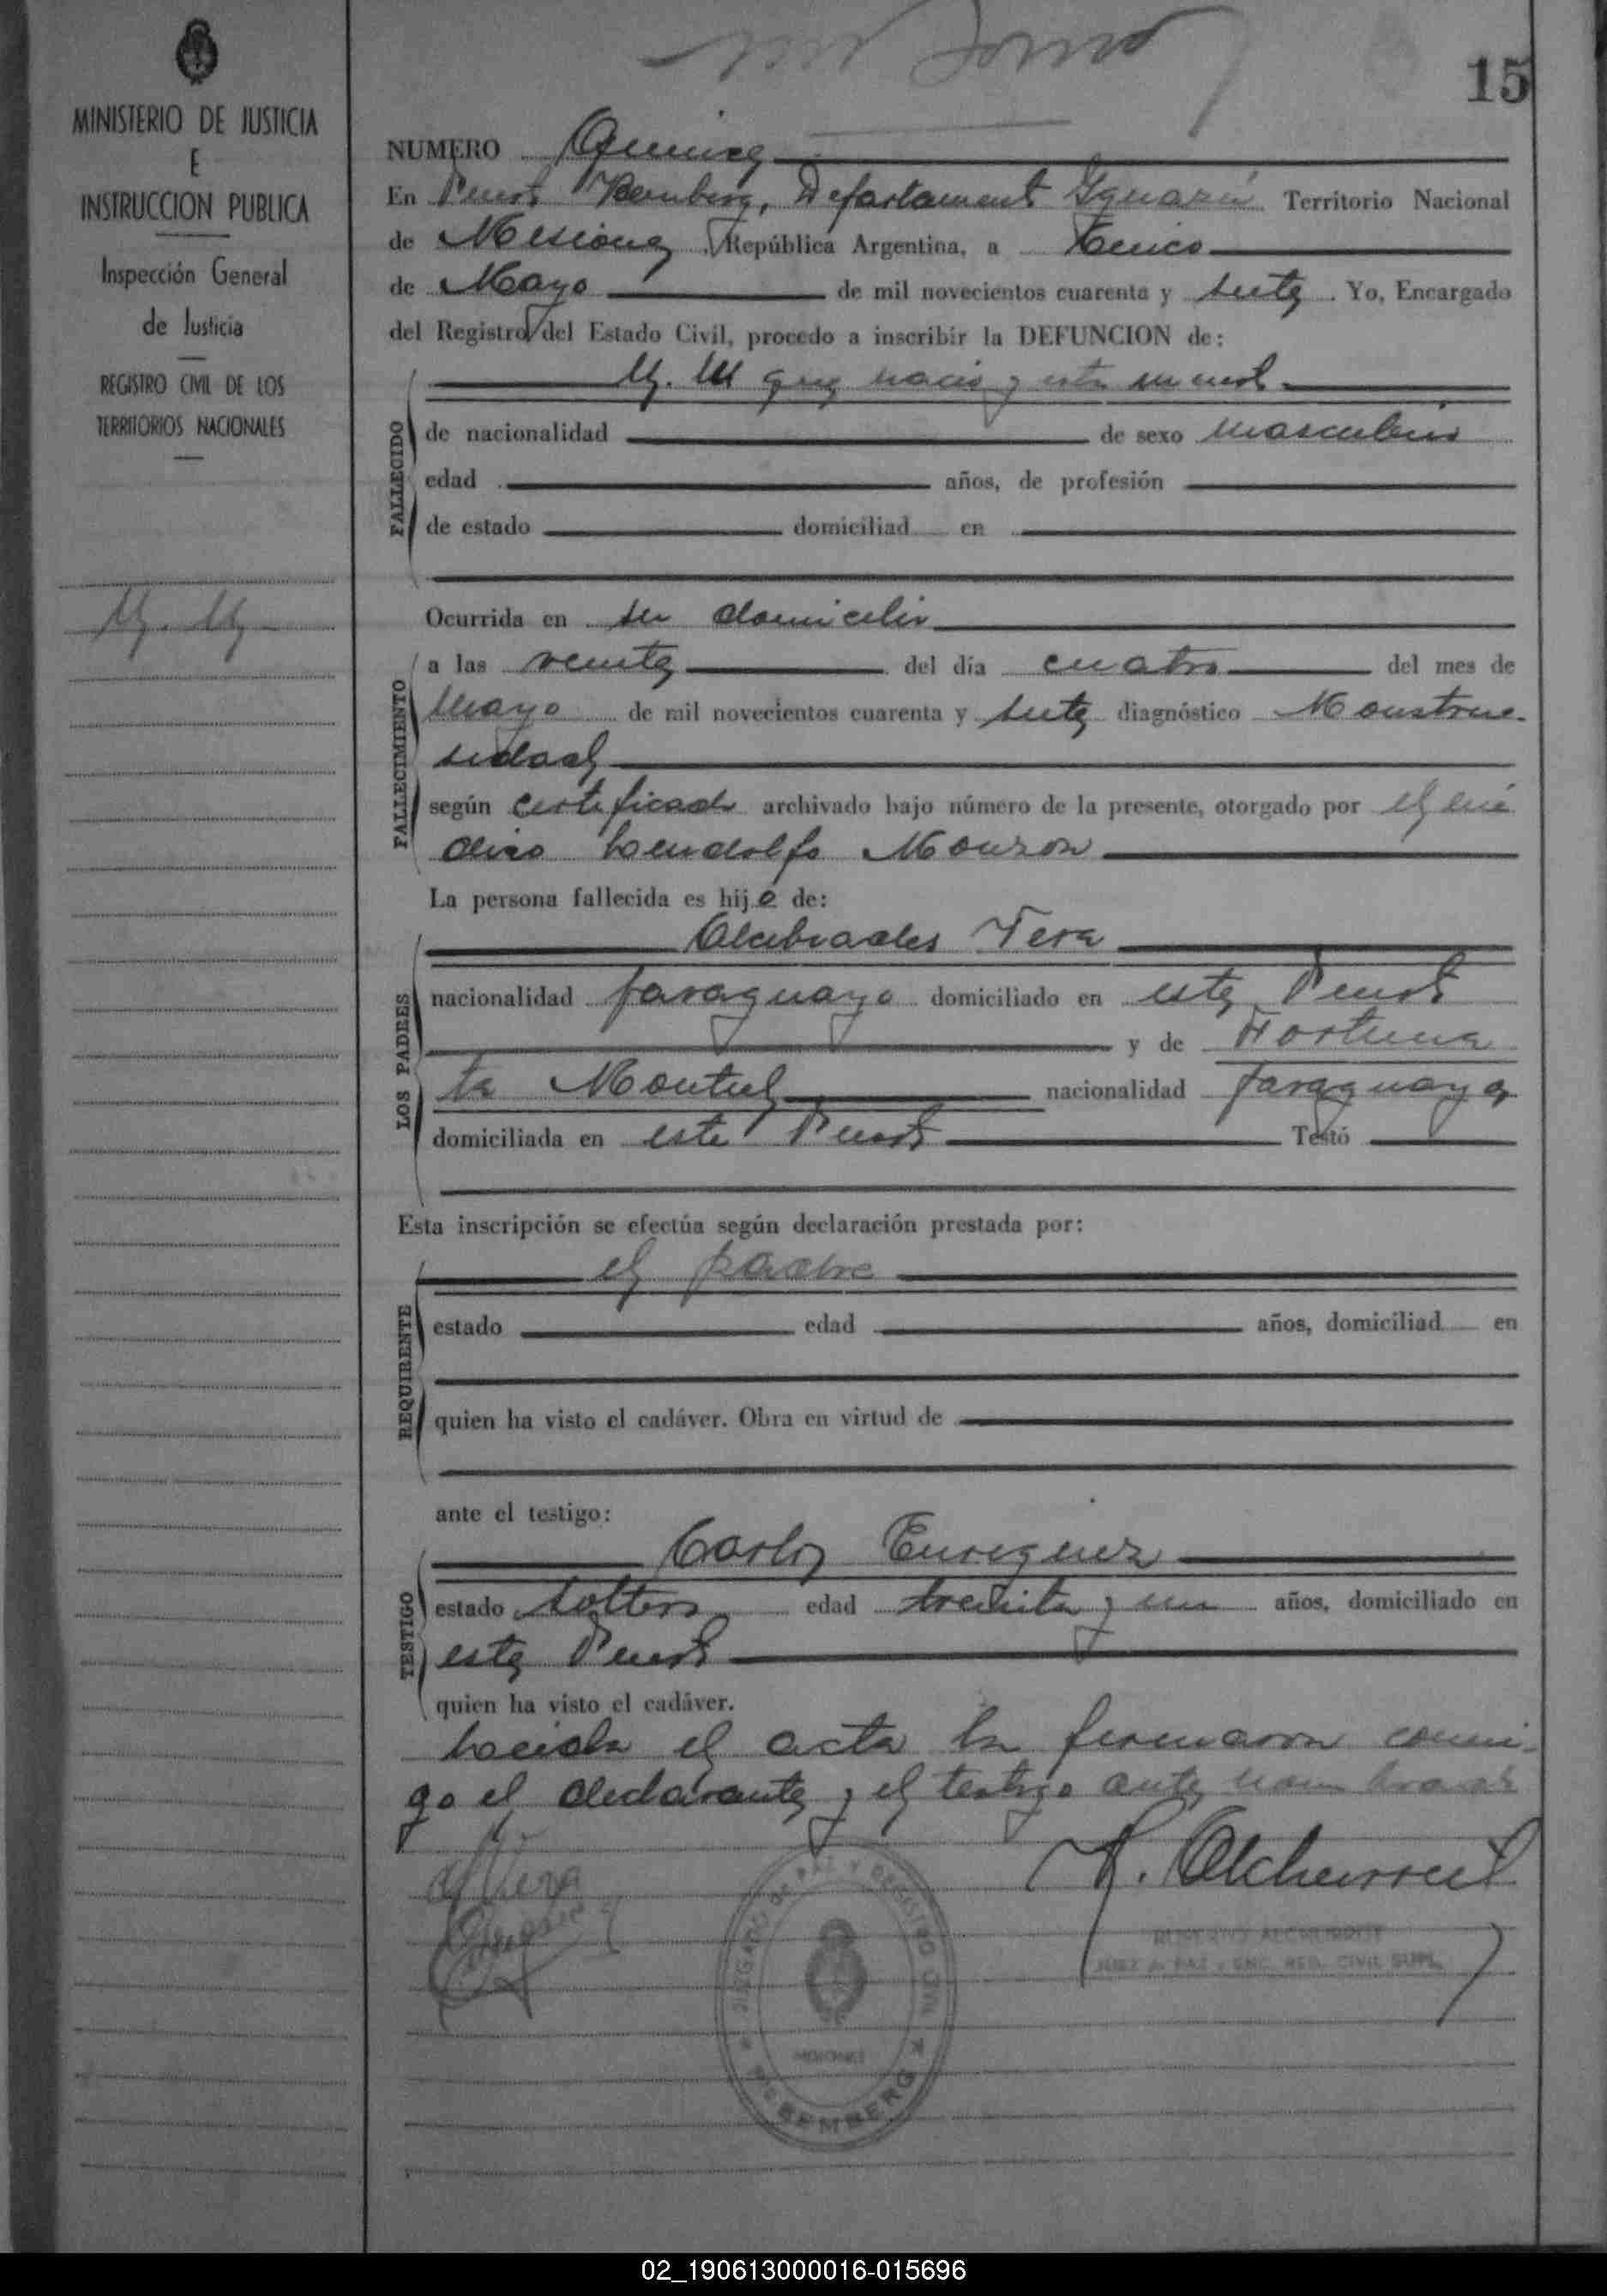 15
MINISTERIO DE JUSTICIA
E
INSTRUCCION PUBLICA
Inspección General
de Justicia
REGISTRO CIVIL DE LOS
TERRITORIOS NACIONALES
NUMERO Quince
En Puerto Bemberg, Departamento Iguazú Territorio Nacional
de Misiones, República Argentina, a cinco
de Mayo de mil novecientos cuarenta y siete. Yo, Encargado
del Registro del Estado Civil, procedo a inscribir la DEFUNCION de:
N. N que nació muerto
FALLECIDO
de nacionalidad de sexo masculino
edad años, de profesión
de estado domiciliad en
N. N.
Ocurrida en su domicilio
FALLECIMIENTO
a las veinte del día cuatro del mes de
Mayo de mil novecientos cuarenta y siete diagnóstico Monstruo-
sidad
según certificado archivado bajo número de la presente, otorgado por el mé
dico Leudolfo Monzon
La persona fallecida es hijo de:
LOS PADRES
Alcibiades Vera
nacionalidad paraguaya domiciliado en este Puerto
y de Fortuna
ta Montiel nacionalidad paraguaya
domiciliada en este Puerto Testó
Esta inscripción se efectúa según declaración prestada por:
REQUIRENTE
el padre
estado edad años, domiciliad en
quien ha visto el cadáver. Obra en virtud de
ante el testigo:
TESTIGO
Carlos Enriquez
estado soltero edad treinta y un años, domiciliado en
este Puerto
quien ha visto el cadáver.
el acta la firmaron conmi-
go el declarante y el testigo ante nombrado
A Vera
R. Alcherrut
JUZGADO DE PAZ Y REGISTRO CIVIL
MISIONES
BEMBERG
JUEZ DE PAZ y ENC. REG. CIVIL SUPL.
02_190613000016-015696